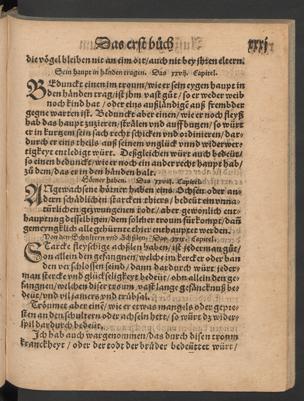 Das erst büch xxxj
die vögel bleiben nit an eim ort/ auch nit bey jhren eltern.
Sein haupt in händen tragen. Das xxvij. Capitel.
BEdunckt einen im troum/ wie er sein eygen haupt in
den händen trag/ ist jhm vast güt/ so er weder weib
noch kind hat/ oder eins außländigs auß frembder
gegne warten ist. Bedunckt aber einen/ wie er noch
hab das haupt zuzieren/ strälen vnd auffbutzen/ so würt
er in kurtzem sein sach recht schicken vnd ordinieren/ dar-
durch er eins theils auß seinem vnglück vnnd widerwer-
tigkeyt entledigt würt. Deßgleichen würt auch bedeüt/
so einen bedunckt/ wie er noch ein ander recht haupt hab/
zů dem/ das er in den händen halt.
Hörner haben. Das xxviij. Capitel.
ANgewachsene hörner haben eins Ochsen oder ans
dern schädlichen starcken thiers/ bedeüt ein vnna-
türlichen gezwungenen tod/ aber gewonlich ent-
hauptung
gemeyngklich alle gehürnte thier enthauptet werden.
Von den Schultern vnd Achßlen. Das xxix. Capitel.
STarcke fleyschige achßlen haben/ ist jederman güt/
on allein den gefangnen/ welche im kercker oder ban
den verschlossen seind/ dann dardurch würt jeder-
man stercke vnd glückseligkeyt bedeüt/ ohn allein den ge-
fangnen/ welchen diser troum vast lange gefäncknuß be-
deüt/ vnd vil jamers vnd trübsal.
Troumet aber eim/ wie er etwas mangels oder gepre-
sten an den schultern oder achseln hett/ so würt dz wider-
spil dardurch bedeüt.
Ich hab auch wargenommen/ das durch disen troum
kranckheyt/ oder der todt der brüder bedeüttet würt/